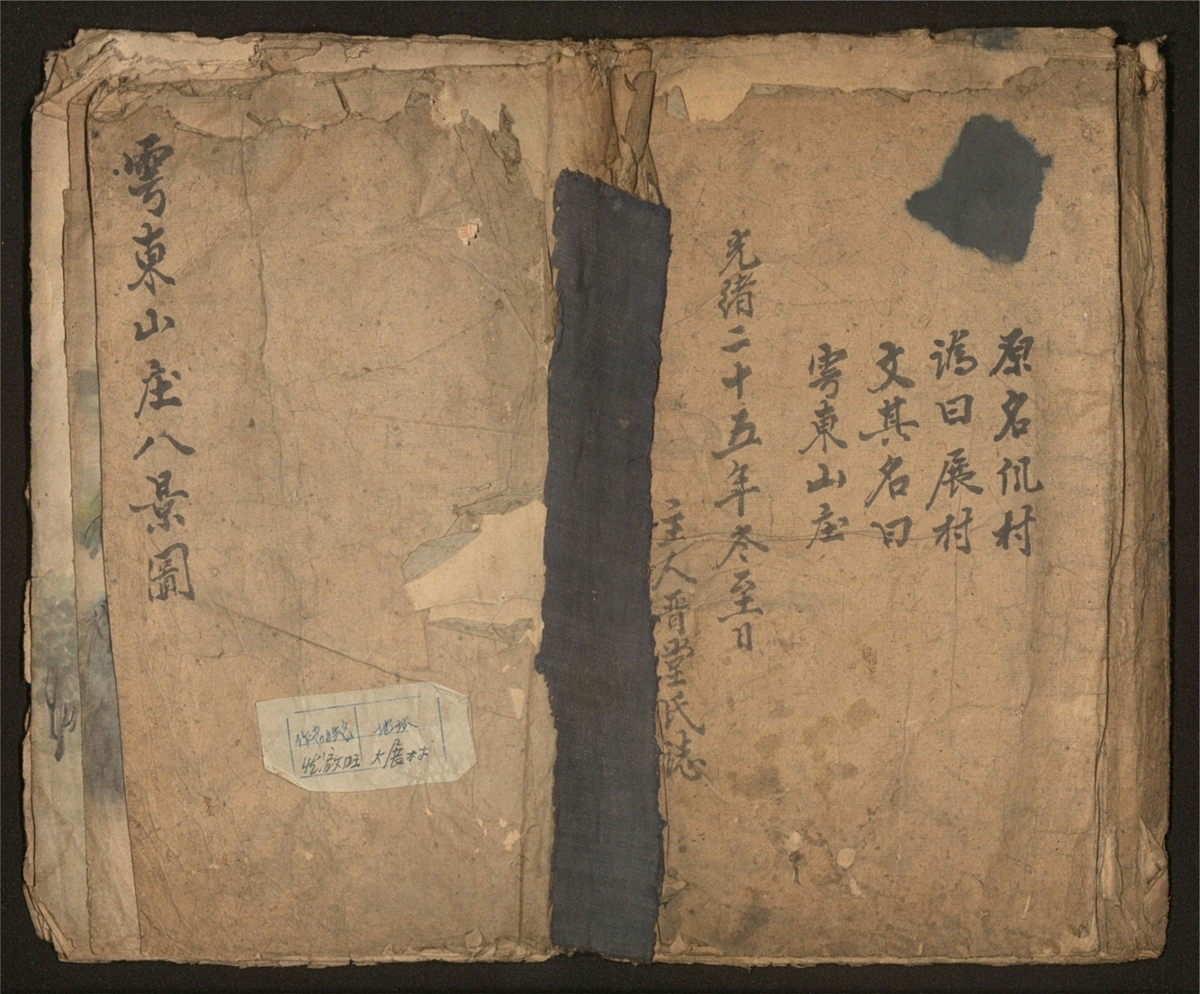 原名侃村
訛曰展村
文其名曰
雩東山庄
光緒二十五年冬至日
主人晋堂氏誌
雩東山庄八景圖
地址
啟旺 大展村